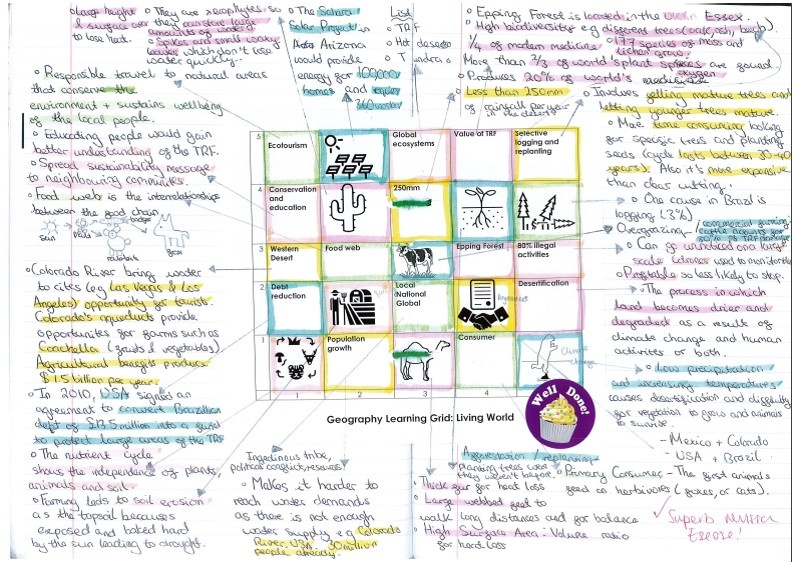 Large height & surface area
to lose heat.
They are xerophytes, so
they can store large
amounts of water
Spikes and small waxy
leaves which don't lose
water quickly.
The Sonora
Solar Project in
Arizona
would provide
energy for 100,000
homes and
360 workers
List
TRF
Hot deserts
Tundra
Epping Forest is located in the Essex.
High biodiversity e.g different trees (oak, ash, beech)
1/4 of modern medicine
177 species of moss and
lichen grow.
More than 2/3 of world's plant species are found.
Produces 20% of world's oxygen
Less than 250mm
of rainfall per year
in the desert
Responsible travel to natural areas
that conserve the
environment + sustains wellbeing
of the local people.
Educating people would gain
better understanding of the TRF.
Spread sustainability message
to neighbouring communities.
Food web is the interrelationships
between the food chain
sun
fox
Colorado River bring water
to cities (eg Las Vegas & Los
Angeles) opportunity for tourists.
Colorado's aqueducts provide
opportunities for farms such as
Coachella (fruits & vegetables)
Agricultural benefits produce
$1.5 billion per year.
In 2010, USA signed an
agreement to convert Brazilian
debt of £13.5 million into a fund
to protect large areas of the TRF
The nutrient cycle
shows the independence of plants,
animals and soil.
Farming leads to soil erosion
as the topsoil becauses
exposed and baked hard
by the sun leading to drought.
5
Ecotourism
Global
ecosystems
Value of TRF
Selective
logging and
replanting
4
Conservation
and
education
250mm
3
Western
Desert
Food web
Epping Forest
80% illegal
activities
2
Debt
reduction
Local
National
Global
Agreement
Desertification
1
Population
growth
Consumer
Climate
Change
1
2
3
4
Geography Learning Grid: Living World
Well Done!
Involves felling mature trees and
letting younger trees mature.
More time consuming looking
for specific trees and planting
seeds (cycle lasts between 30-40
years). Also it's more expensive
than clear cutting.
One cause in Brazil is
logging (3%)
Overgrazing / commercial farming
Can go unnoticed on a large
scale (drones used to monitor
Profitable so less likely to stop.
The process in which
land becomes drier and
degraded as a result of
climate change and human
activities or both.
Low precipitation
and increasing temperatures
causes desertification and difficulty
for vegetation to grow and animals
to survive.
- Mexico + Colorado
- USA + Brazil
Indigenous tribe,
political conflict, resources
Makes it harder to
reach water demands
as there is not enough
water supply e.g Colorado
River, USA. 30 million
people already.
Afforestation / replanting-
planting trees where
they weren't before.
Thick fur for heat loss
Large webbed feet to
walk long distances and for balance
High Surface Area: Volume ratio
for heat loss
Primary Consumer - The first animals
feed on herbivores (foxes, or cats).
Superb